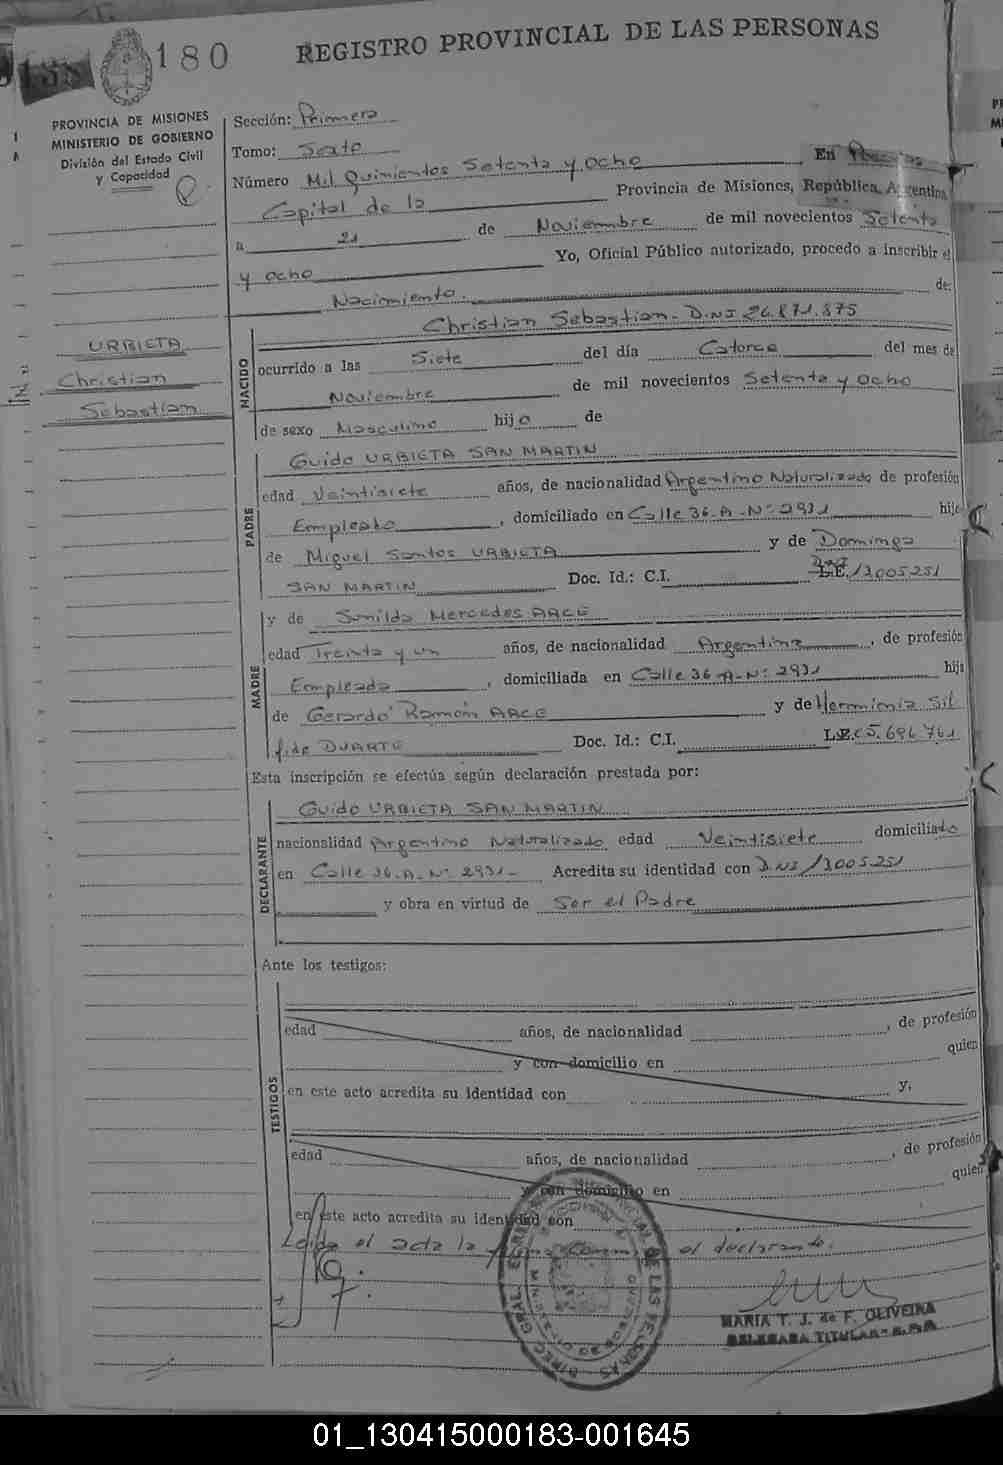 180
REGISTRO PROVINCIAL DE LAS PERSONAS
PROVINCIA DE MISIONES
MINISTERIO DE GOBIERNO
División del Estado Civil
y Capacidad
Sección: Primera
Tomo: Sexto
Número Mil Quinientos Setenta y ocho En Posadas
Capital de la Provincia de Misiones, República Argentina
a 21 de Noviembre de mil novecientos Setenta
y ocho Yo, Oficial Público autorizado, procedo a inscribir el
Nacimiento. de:
URBIETA
Christian
Sebastian
NACIDO
Christian Sebastian - D.N.I 26.871.875
ocurrido a las Siete del día Catorce del mes de
Noviembre de mil novecientos Setenta y ocho
de sexo Masculino hijo de
PADRE
Guido URBIETA SAN MARTIN
edad Veintisiete años, de nacionalidad Argentino Naturalizado de profesión
Empleado, domiciliado en Calle 36-A-Nº 2931 hijo
de Miguel Santos URBIETA y de Dominga
SAN MARTIN Doc. Id.: C.I. L.E. 13005251
MADRE
y de Sunilda Mercedes ARCE
edad Treinta y un años, de nacionalidad Argentina, de profesión
Empleada, domiciliada en Calle 36-A-Nº 2931 hija
de Gerardo Ramón ARCE y de Herminia Sil
fida DUARTE Doc. Id.: C.I. L.E. 5.696.761
Esta inscripción se efectúa según declaración prestada por:
DECLARANTE
Guido URBIETA SAN MARTIN
nacionalidad Argentino Naturalizado edad Veintisiete domiciliado
en Calle 36-A-Nº 2931- Acredita su identidad con D.N.I 13005251
y obra en virtud de Ser el Padre
Ante los testigos:
TESTIGOS
edad años, de nacionalidad, de profesión
y con domicilio en quien
en este acto acredita su identidad con y,
edad años, de nacionalidad, de profesión
y con domicilio en quien
en este acto acredita su identidad con
Leida el acta la firma conmigo el declarante.
MARIA T. J. de F. OLIVEIRA
DELEGADA TITULAR
01_130415000183-001645